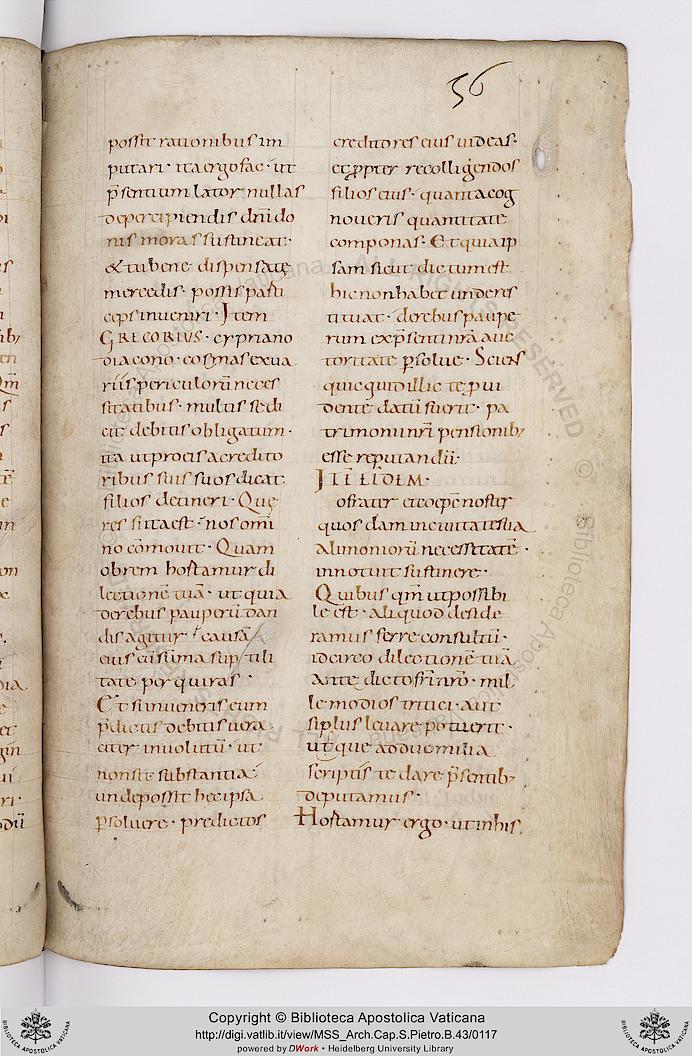 56
possit rationibus im
putari· ita ergo fac· ut
p̄sentium lator nullas
de percipiendis dn̄i do
nis moras sustineat·
& tu bene dispensatę
mercedis· possis pasti
ceps inveniri· Item
GREGORIUS· cypriano
diacono· cosmas ex ua
riis periculorū neces
sitatibus· multis se di
cit debitis obligatum·
ita ut pro eis a credito
ribus suis suos dicat
filios detineri· Que
res si ita est· nos omi
no cōmouit· Quam
obrem hostamur di
lectionē tuā· ut quia
de rebus pauperū dan
dis agitur· causā
eius cū sūma sup tili
tate perquiras·
Et si inueneris eum
p̄dictis debitis uera
citer inuolutū· ut
non sit substantia
unde possit hec ipsa
p̄soluere· predictos
creditores eius uideas·
et ꝓpter recolligendos
filios eius· quanta cog
noueris quantitate
componas· Et quia ip
sam sicut dictum est
hic non habet unde res
tituat· de rebus paupe
rum ex p̄senti nr̄a auc
toritate p̄solue· Sciens
quicquid illic te ꝓui
dente datū fuerit· pa
trimonii nr̄i pensionib;
esse reputandū·
ITĒ EIDEM·
frater et coepēs nostir
quosdam in ciuitate sua
alimoniorū necessitatē·
innotuit sustinere·
Quibus qm̄ ut possibi
le est· aliquod deside
ramus ferre consultū·
idcirco dilectionē tuā
ante dicto fr̄i nr̄o· mil
le modios tritici· aut
si plus leuare potuerit·
utique ad duo milia
scriptis te dare p̄sentib;
deputamus·
Hostamur ergo· ut in his
Copyright © Biblioteca Apostolica Vaticana
http://digi.vatlib.it/view/MSS_Arch.Cap.S.Pietro.B.43/0117
powered by DWork • Heidelberg University Library